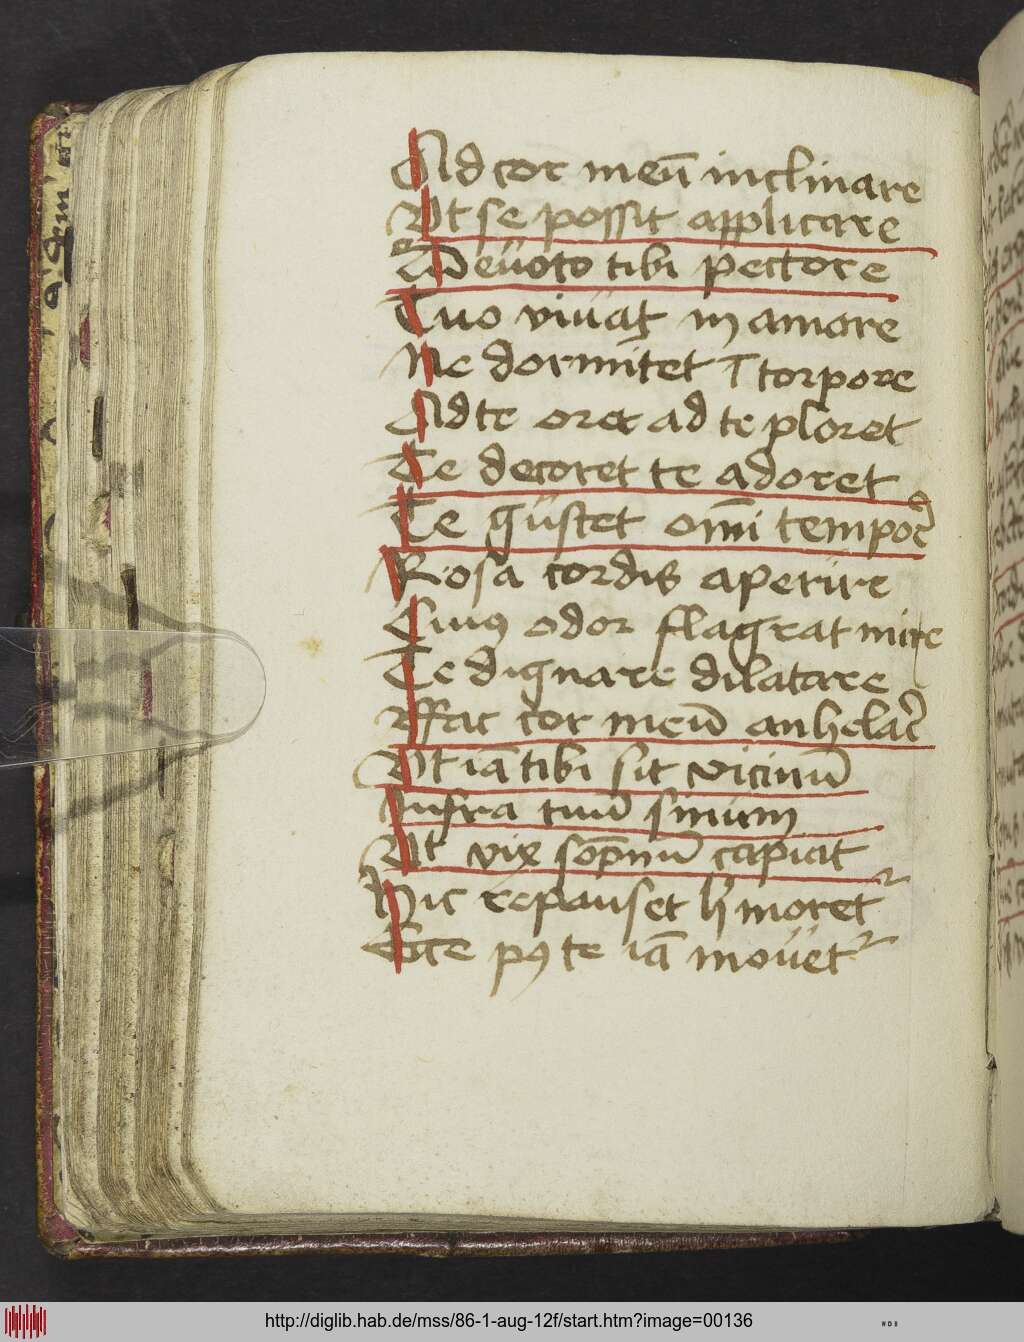 Ad cor meū inclinare
Vt se possit applicare
Deuoto tibi pectore
Tuo viuat in amore
Ne dormitet ī torpore
Ad te oret ad te ploret
Te decoret te adoret
Te gustet om̄i tempore
Rosa cordis aperire
Cuiꝰ odor flagrat mire
Te dignare dilatare
Et fac cor meū anhelare
Vt iā tibi sit vicinū
Infra tuū sinum
Vt vix sōpnū capiat
Hic repauset h' moret᷑
Ecce pꝰ te iā mouet᷑
http://diglib.hab.de/mss/86-1-aug-12f/start.htm?image=00136